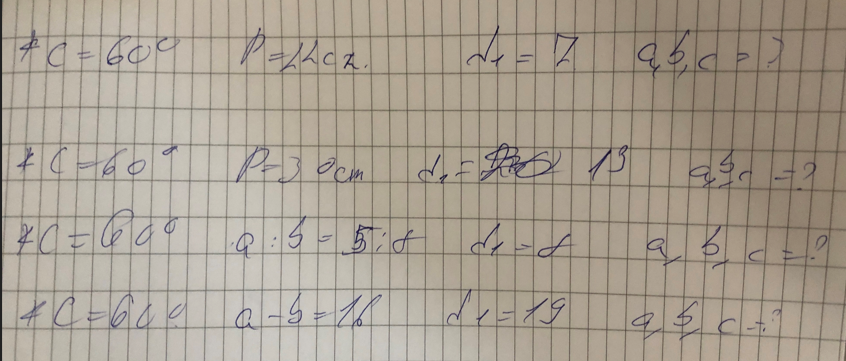 ∢C = 60° P = 22 cм. d₁ = 7 a, b, c = ?
∢C = 60° P = 30 cm d₁ = 13 a, b, c = ?
∢C = 60° a : b = 5 : 8 d₁ = 8 a, b, c = ?
∢C = 60° a - b = 16 d₁ = 19 a, b, c = ?